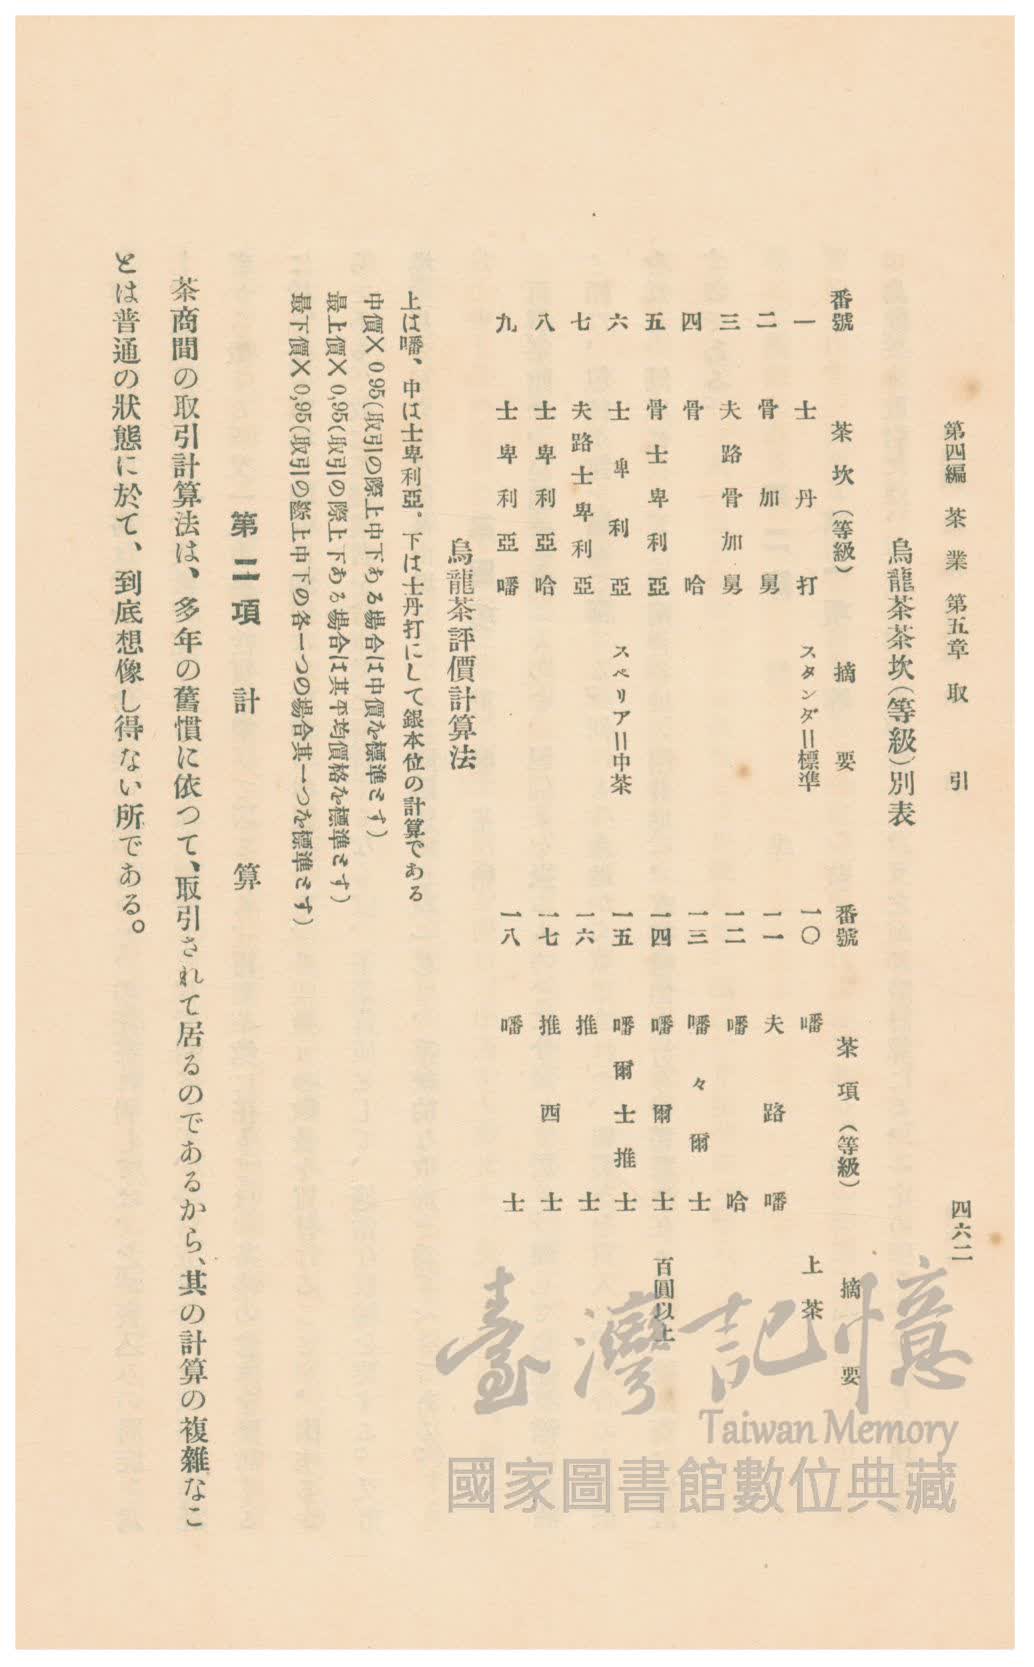 第四編 茶業 第五章 取引 四六二
烏龍茶茶坎(等級)別表
番號 茶坎(等級) 摘要
一 士丹打 スタンダ=標準
二 骨加舅
三 夫路骨加舅
四 骨哈
五 骨士卑利亞
六 士卑利亞 スペリア=中茶
七 夫路士卑利亞
八 士卑利亞哈
九 士卑利亞嶓
番號 茶項(等級) 摘要
一〇 嶓 上茶
一一 夫路嶓
一二 嶓哈
一三 嶓々爾士
一四 嶓爾士 百圓以上
一五 嶓爾士推士
一六 推士
一七 推西士
一八 嶓士
烏龍茶評價計算法
上は嶓、中は士卑利亞。下は士丹打にして銀本位の計算である
中價×0.95(取引の際上中下ある場合は中價を標準とす)
最上價×0,95(取引の際上下ある場合は其平均價格を標準とす)
最下價×0,95(取引の際上中下の各一つの場合其一つを標準とす)
第二項 計算
茶商間の取引計算法は、多年の舊慣に依つて、取引されて居るのであるから、其の計算の複雜なこ
とは普通の狀態に於て、到底想像し得ない所である。
臺灣記憶
Taiwan Memory
國家圖書館數位典藏